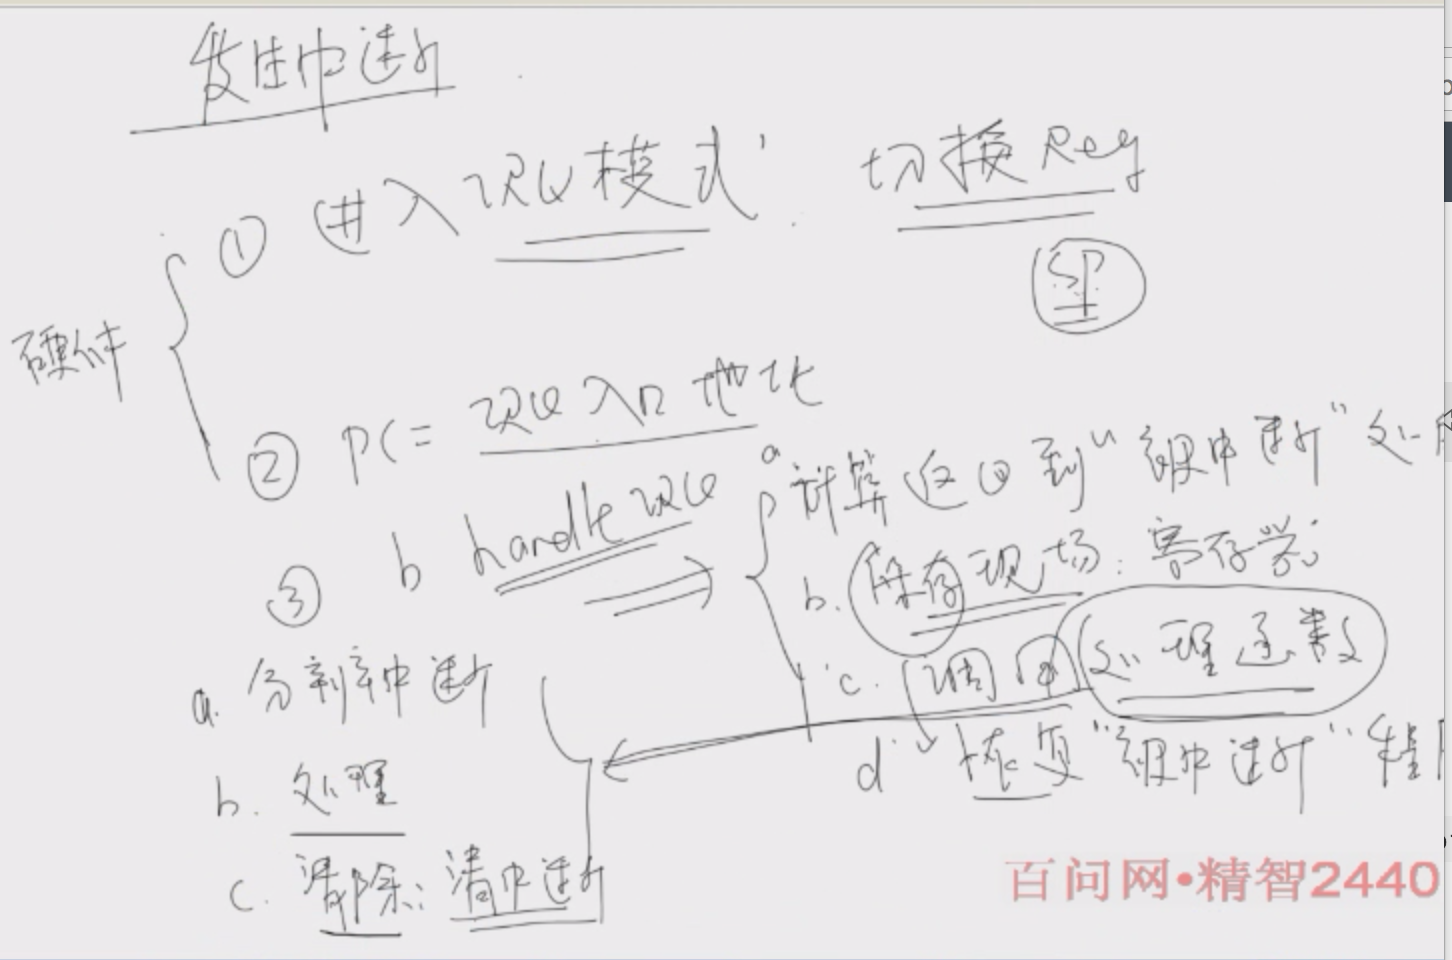 发生中断
① 进入IRQ模式 切换Reg
SP
硬件
② PC= IRQ入口地址
③ b handle IRQ
a 计算返回到"被中断"处
b. 保存现场: 寄存器
c. 调用处理函数
d 恢复"被中断"程
a. 分辨中断
b. 处理
c. 清除: 清中断
百问网•精智2440